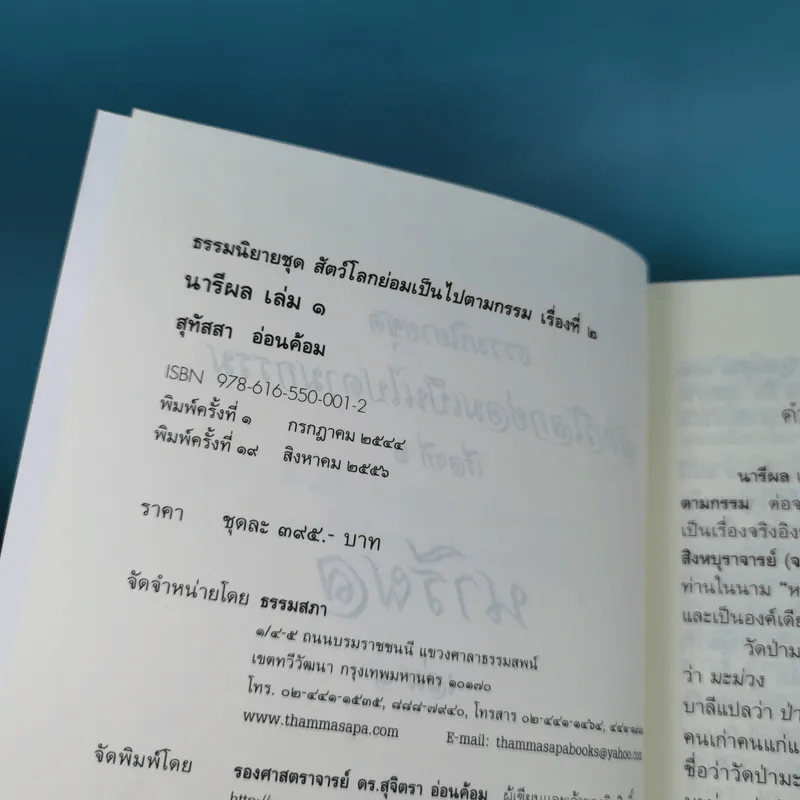 ธรรมนิยายชุด สัตว์โลกย่อมเป็นไปตามกรรม เรื่องที่ ๒
นารีผล เล่ม ๑
สุทัสสา อ่อนค้อม
ISBN 978-616-550-001-2
พิมพ์ครั้งที่ ๑ กรกฎาคม ๒๕๔๔
พิมพ์ครั้งที่ ๑๙ สิงหาคม ๒๕๕๖
ราคา ชุดละ ๓๙๕.- บาท
จัดจำหน่ายโดย ธรรมสภา
๑/๔-๕ ถนนบรมราชชนนี แขวงศาลาธรรมสพน์
เขตทวีวัฒนา กรุงเทพมหานคร ๑๐๑๗๐
โทร. ๐๒-๔๔๑-๑๕๓๕, ๘๘๘-๗๙๔๐, โทรสาร ๐๒-๔๔๑-๑๔๖๔,
www.thammasapa.com E-mail: thammasapabooks@yahoo.com
จัดพิมพ์โดย รองศาสตราจารย์ ดร.สุจิตรา อ่อนค้อม
นารีผล
ตามกรรม ต่อจ
เป็นเรื่องจริงอิง
สิงหบุราจารย์ (จ
ท่านในนาม "ห
และเป็นองค์เดีย
วัดป่าม
ว่า มะม่วง
บาลีแปลว่า ป่า
คนเก่าคนแก่แ
ชื่อว่าวัดป่ามะ